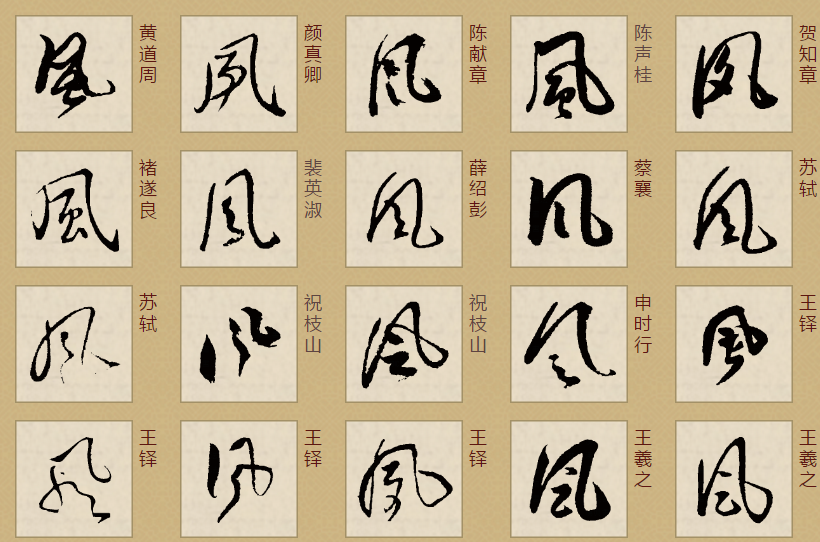 風 黄道周 風 颜真卿 風 陈献章 風 陈声桂 風 贺知章
風 褚遂良 風 裴英淑 風 薛绍彭 風 蔡襄 風 苏轼
風 苏轼 風 祝枝山 風 祝枝山 風 申时行 風 王铎
風 王铎 風 王铎 風 王铎 風 王羲之 風 王羲之